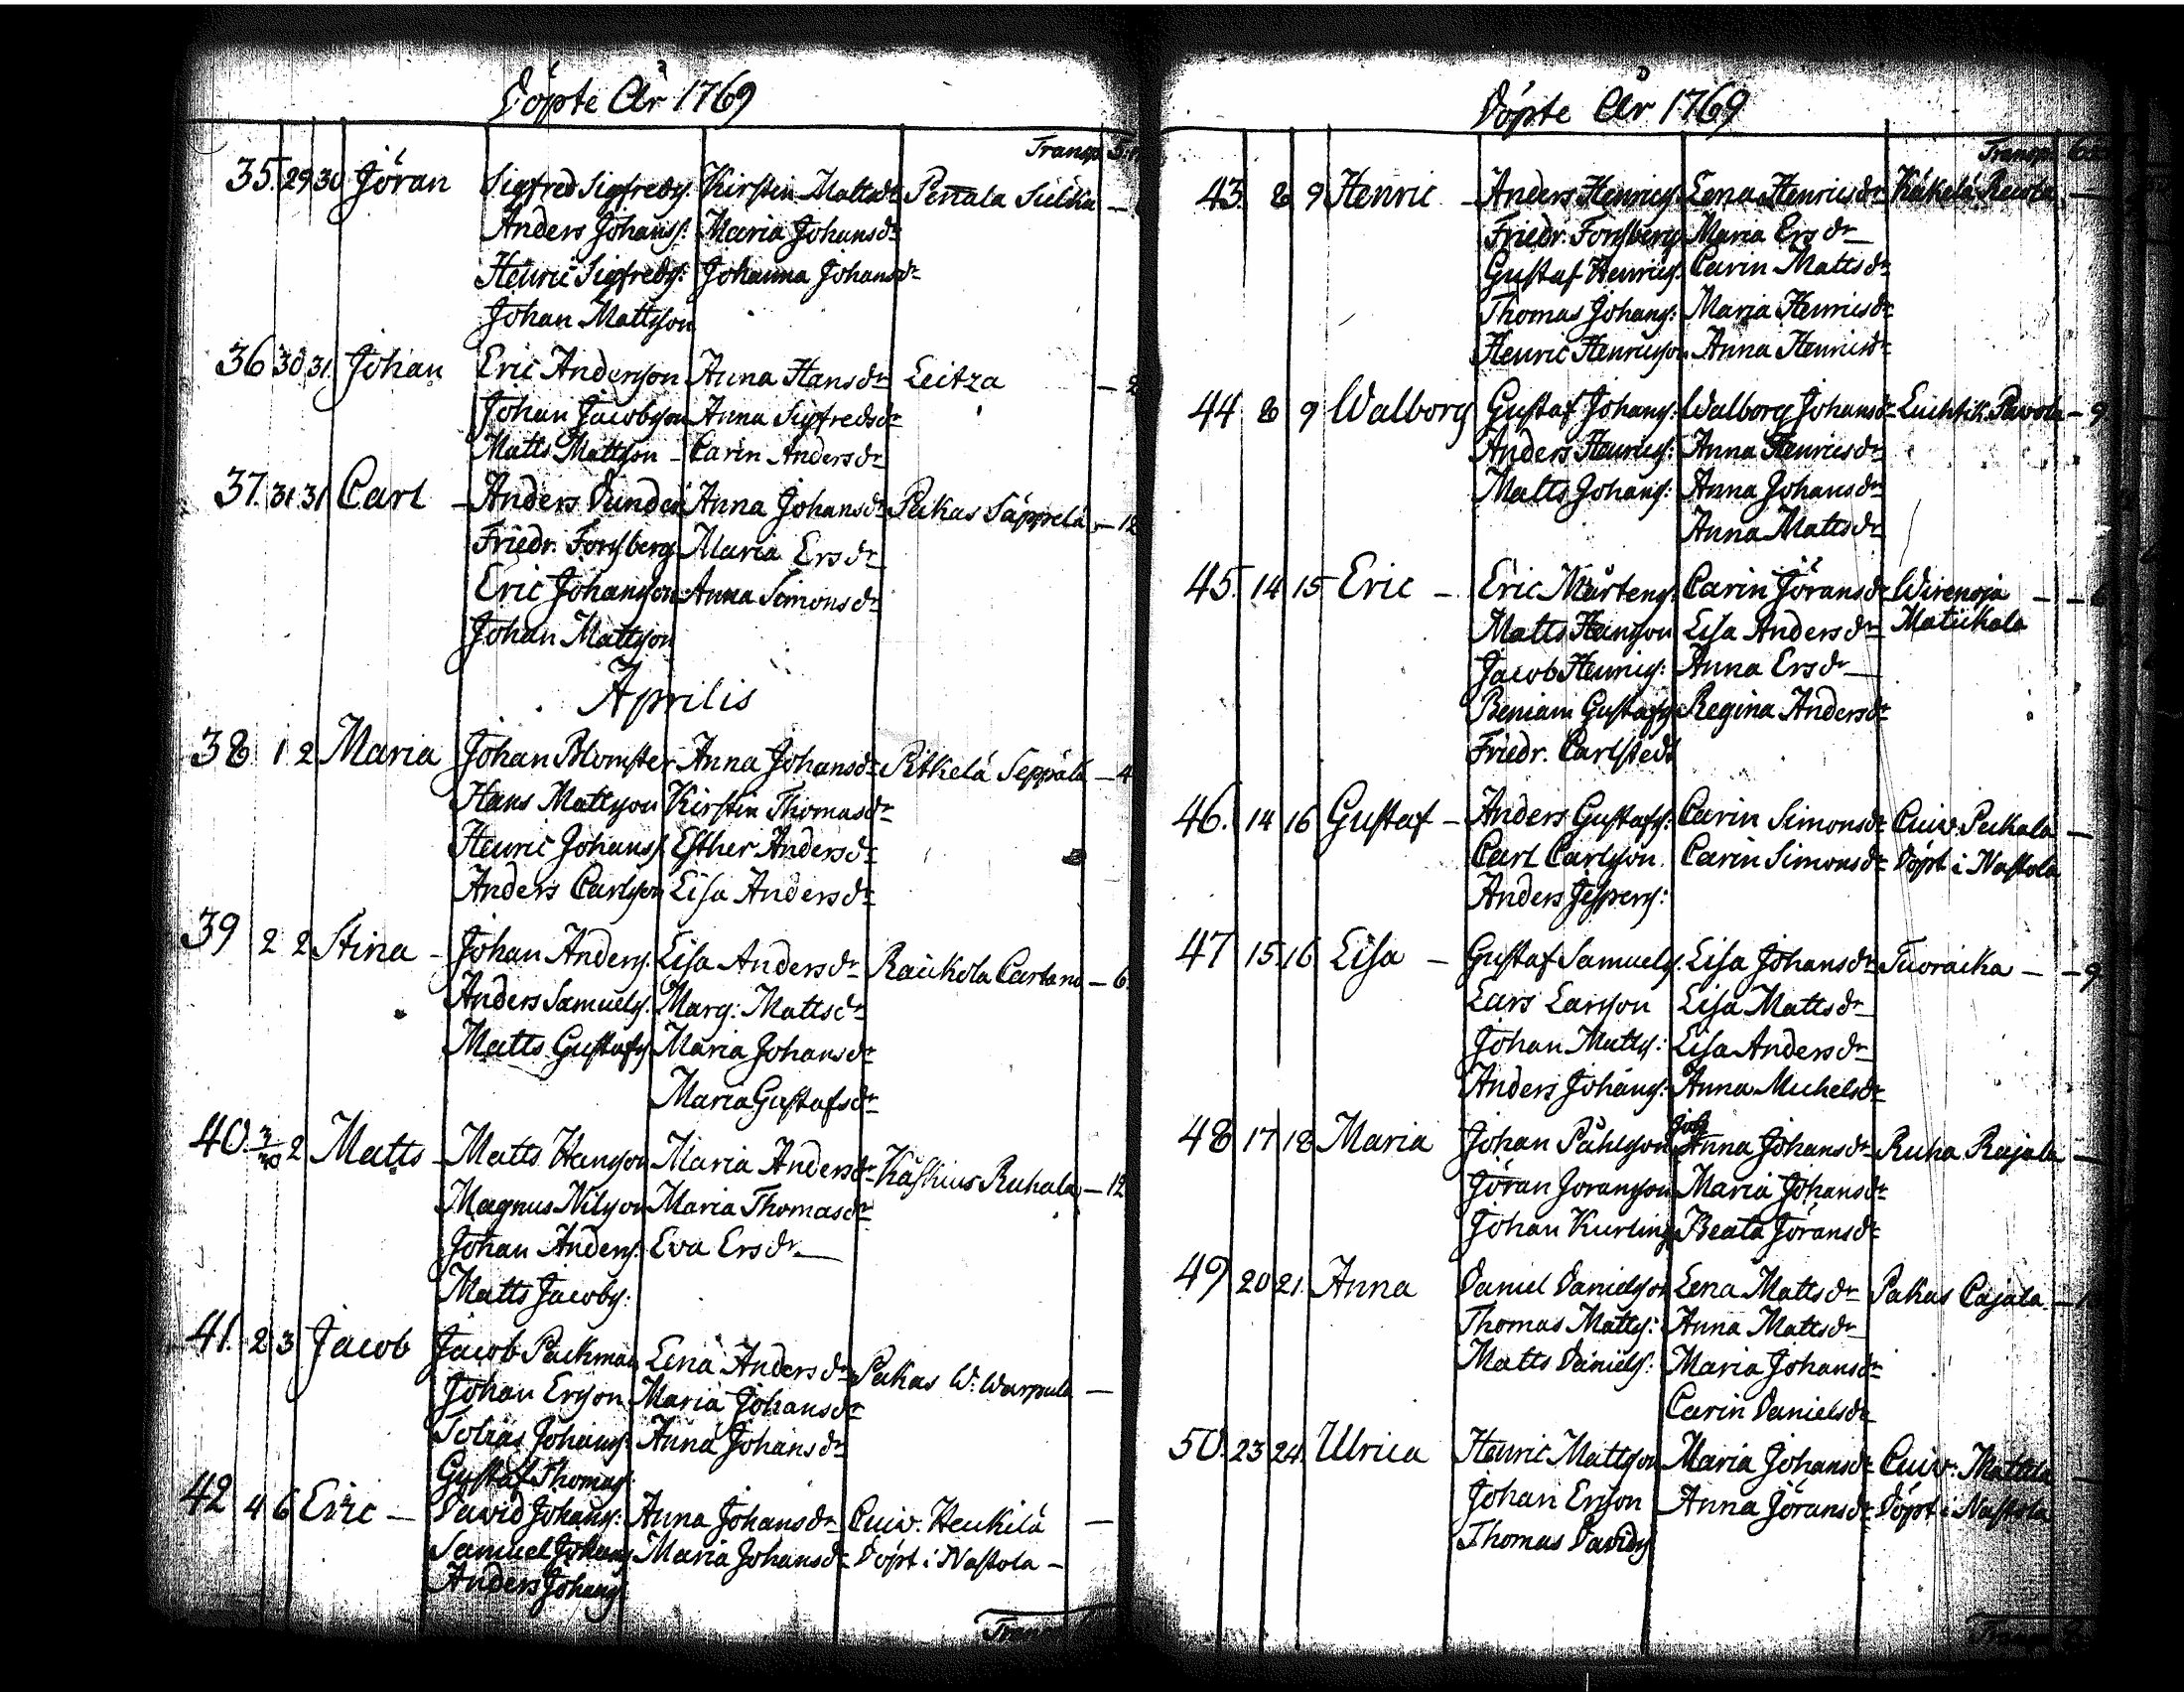 Döpte År 1769
Transp.
35. 29 30 Jöran Sigfred Sigfreds: Kirstin Mattsdr Pentala Sulka –
Anders Johanss: Maria Johansdr
Henric Sigfreds: Johanna Johansdr
Johan Mattsson
36 30 31. Johan Eric Andersson Anna Hansdr Leitza – 2
Johan Jacobsson Anna Sigfredsdr
Matts Mattsson – Carin Andersdr
37. 31 31 Carl – Anders Dunder Anna Johansdr Pakas Säppelä – 12
Friedr. Forssberg Maria Ersdr
Eric Johansson Anna Simonsdr
Johan Mattsson
Aprilis
38 1 2 Maria Johan Blomster Anna Johansdr Pitkelä Seppälä – 4
Hans Mattsson Kirstin Thomasdr
Henric Johanss: Esther Andersdr
Anders Carlsson Lisa Andersdr
39 2 2 Stina – Johan Anders: Lisa Andersdr Raukola Cartano – 6
Anders Samuels: Marg: Mattsdr
Matts Gustafs: Maria Johansdr
Maria Gustafsdr
40 2 Matts – Matts Hansson Maria Andersdr Ruhala – 12
Magnus Nilsson Maria Thomasdr
Johan Anders: Eva Ersdr –
Matts Jacobs:
41. 2 3 Jacob Jacob Packman Lena Andersdr Pakas W. Warpula –
Johan Ersson Maria Johansdr
Tobias Johans: Anna Johansdr
Gustaf Thomas:
42 4 6 Eric – David Johans: Anna Johansdr Cuiv. Heikilä –
Samuel Johans: Maria Johansdr Döpt i Nastola –
Anders Johans:
Transp
Döpte År 1769
Transp.
43. 8 9 Henric – Anders Henrics: Lena Henricsdr Käkelä Rasta –
Friedr. Forssberg Maria Ersdr –
Gustaf Henrics: Carin Mattsdr
Thomas Johans: Maria Henricsdr
Henric Henricsson Anna Henricsdr
44 8 9 Walborg Gustaf Johans: Walborg Johansdr Luhtik. Pavola – 9
Anders Henrics: Anna Henricsdr
Matts Johans: Anna Johansdr
Anna Mattsdr
45. 14 15 Eric – Eric Mårtens: Carin Jöransdr Wirenoja – – 6
Matts Hansson Lisa Andersdr Matickala
Jacob Henrics: Anna Ersdr –
Beniam Gustafs: Regina Andersdr
Friedr. Carlstedt
46. 14 16 Gustaf – Anders Gustafs: Carin Simonsdr Cuiv. Pukala –
Carl Carlsson Carin Simonsdr Döpt i Nastola
Anders Jespers:
47 15 16 Lisa – Gustaf Samuels: Lisa Johansdr Tuoraika – – 9
Lars Larsson Lisa Mattsdr
Johan Matts: Lisa Andersdr
Anders Johans: Anna Michelsdr
48 17 18 Maria Johan Påhlsson Anna Johansdr Ruha Rajala –
Jöran Joransson Maria Johansdr
Johan Kurling Beata Jöransdr
49 20 21. Anna Daniel Danielsson Lena Mattsdr Pakas Cajala –
Thomas Matts: Anna Mattsdr
Matts Daniels: Maria Johansdr
Carin Danielsdr
50. 23 24. Ulrica Henric Mattsson Maria Johansdr Cuiv. Mattila –
Johan Ersson Anna Jöransdr Döpt i Nastola
Thomas Davids: